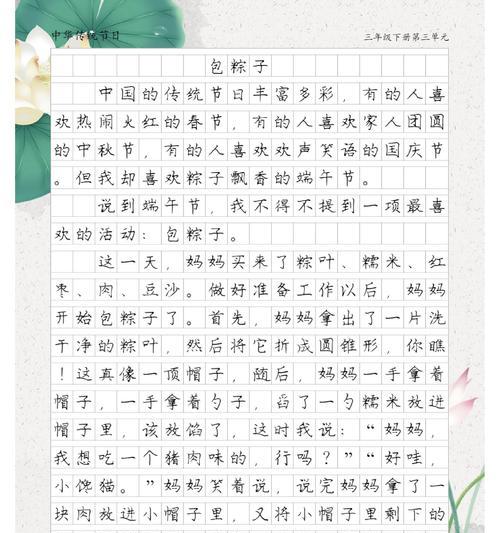 中华传统节日
三年级下册第三单元
包粽子
中国的传统节日丰富多彩，有的人喜
欢热闹火红的春节，有的人喜欢家人团圆
的中秋节，有的人喜欢欢声笑语的国庆节
。但我却喜欢粽子飘香的端午节。
说到端午节，我不得不提到一项最喜
欢的活动：包粽子。
这一天，妈妈买来了粽叶、糯米、红
枣、肉、豆沙。做好准备工作以后，妈妈
开始包粽子了。首先，妈妈拿出了一片洗
干净的粽叶，然后将它折成圆锥形，你瞧
！这真像一顶帽子，随后，妈妈一手拿着
帽子，一手拿着勺子，舀了一勺糯米放进
帽子里，该放馅了，这时我说：“妈妈，
我想吃一个猪肉味的，行吗？”“好哇，
小馋猫。”妈妈笑着说，说完妈妈拿了一
块肉放进小帽子里，又将小帽子里剩下的